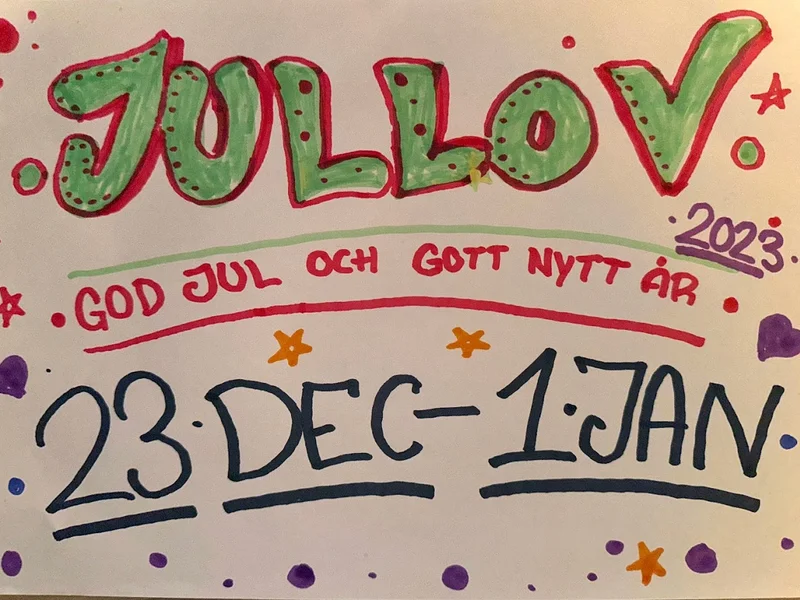 JULLOV
2023
GOD JUL OCH GOTT NYTT ÅR
23 DEC - 1 JAN